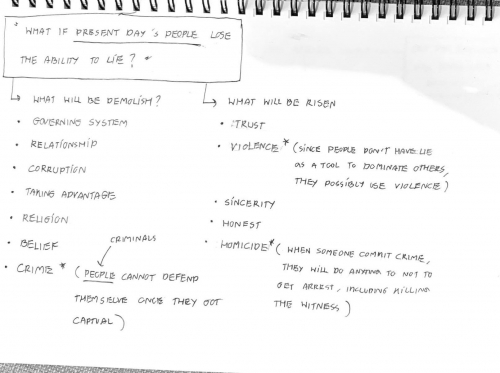 "WHAT IF PRESENT DAY'S PEOPLE LOSE
THE ABILITY TO LIE? "
WHAT WILL BE DEMOLISH?
• GOVERNING SYSTEM
• RELATIONSHIP
• CORRUPTION
• TAKING ADVANTAGES
• RELIGION
• BELIEF
CRIMINALS
• CRIME * ( PEOPLE CANNOT DEFEND
THEMSELVE ONCE THEY GOT
CAPTUAL )
WHAT WILL BE RISEN
• TRUST
• VIOLENCE * ( SINCE PEOPLE DON'T HAVE LIE
AS A TOOL TO DOMINATE OTHERS,
THEY POSSIBLY USE VIOLENCE )
• SINCERITY
• HONEST
• HOMICIDE * ( WHEN SOMEONE COMMIT CRIME,
THEY WILL DO ANYTHING TO NOT TO
GET ARREST, INCLUDING KILLING
THE WITNESS )